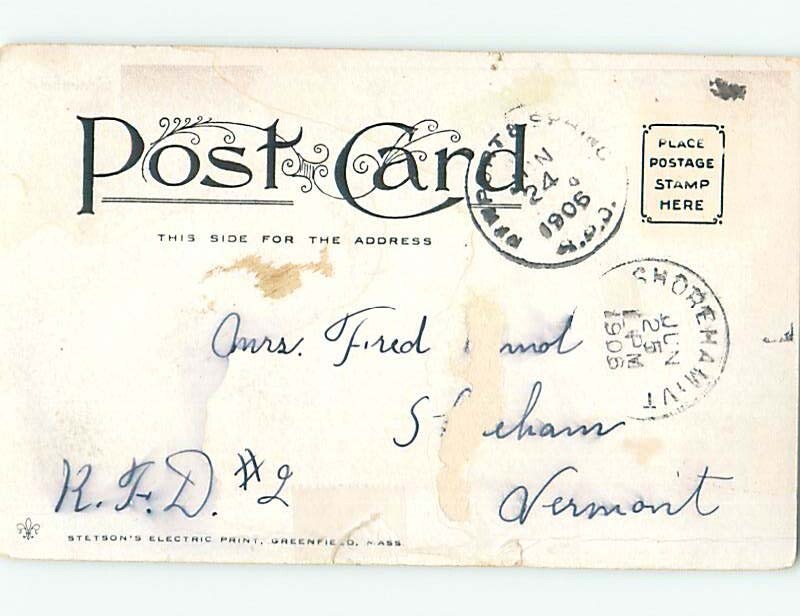 Post Card
PLACE
POSTAGE
STAMP
HERE
THIS SIDE FOR THE ADDRESS
24
1906
R.P.O.
SHOREHAM, VT
JUN
25
1 PM
1906
Mrs. Fred
Vermont
R.F.D. #2
STETSON'S ELECTRIC PRINT, GREENFIELD, MASS